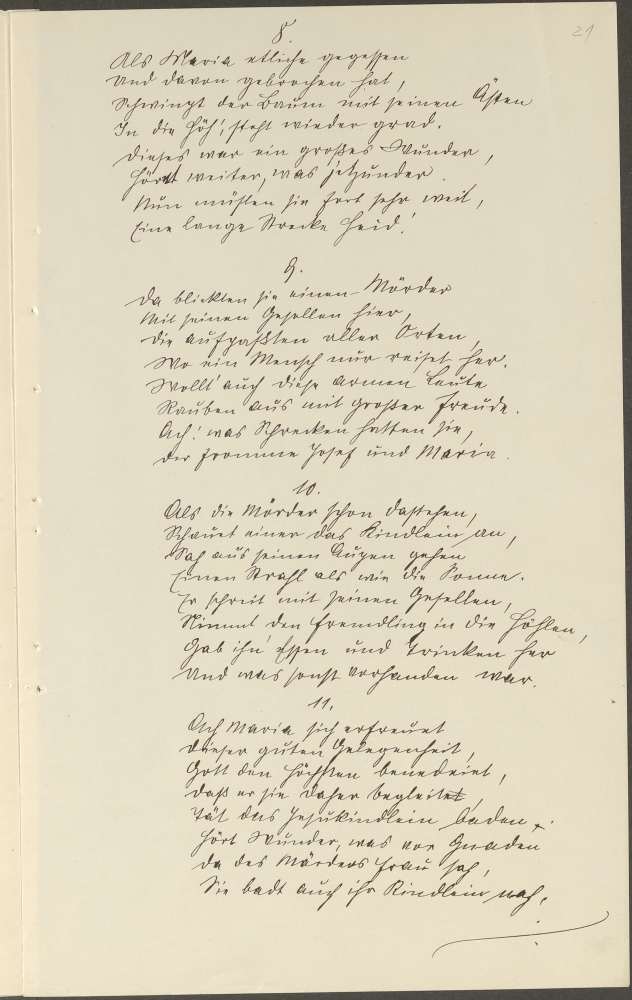 21
8.
Als Maria etliche gegessen
Und davon gebrochen hat,
Schwingt der Baum mit seinen Ästen
In die Höh', steht wieder grad.
Dieses war ein großes Wunder,
Hört weiter, was jetzunder.
Nun müßten sie fort sehr weit,
Eine lange Strecke Heid!
9.
Da blickten sie einen Mörder
Mit seinen Gesellen hier,
Die aufpaßten aller Orten,
Wo ein Mensch nur reiset her.
Wollt' auch diese armen Leute
Rauben aus mit großer Freude.
Ach! was Schrecken hatten sie,
Der fromme Josef und Maria.
10.
Als die Mörder schon dastehen,
Schauet einer das Kindlein an,
Sah aus seinen Augen gehen
Einen Strahl als wie die Sonne.
Er schreit mit seinen Gesellen,
Nimmt den Fremdling in die Höhlen,
Gab ihn' Essen und Trinken her
Und was sonst vorhanden war.
11.
Ach Maria sich erfreuet
Dieser guten Gelegenheit,
Gott den Höchsten benedeiet,
Daß er sie daher begleitet,
Tät das Jesukindlein baden.
Hört Wunder, was vor Gnaden
Da des Mörders Frau sah,
Sie badt auch ihr Kindlein nach.